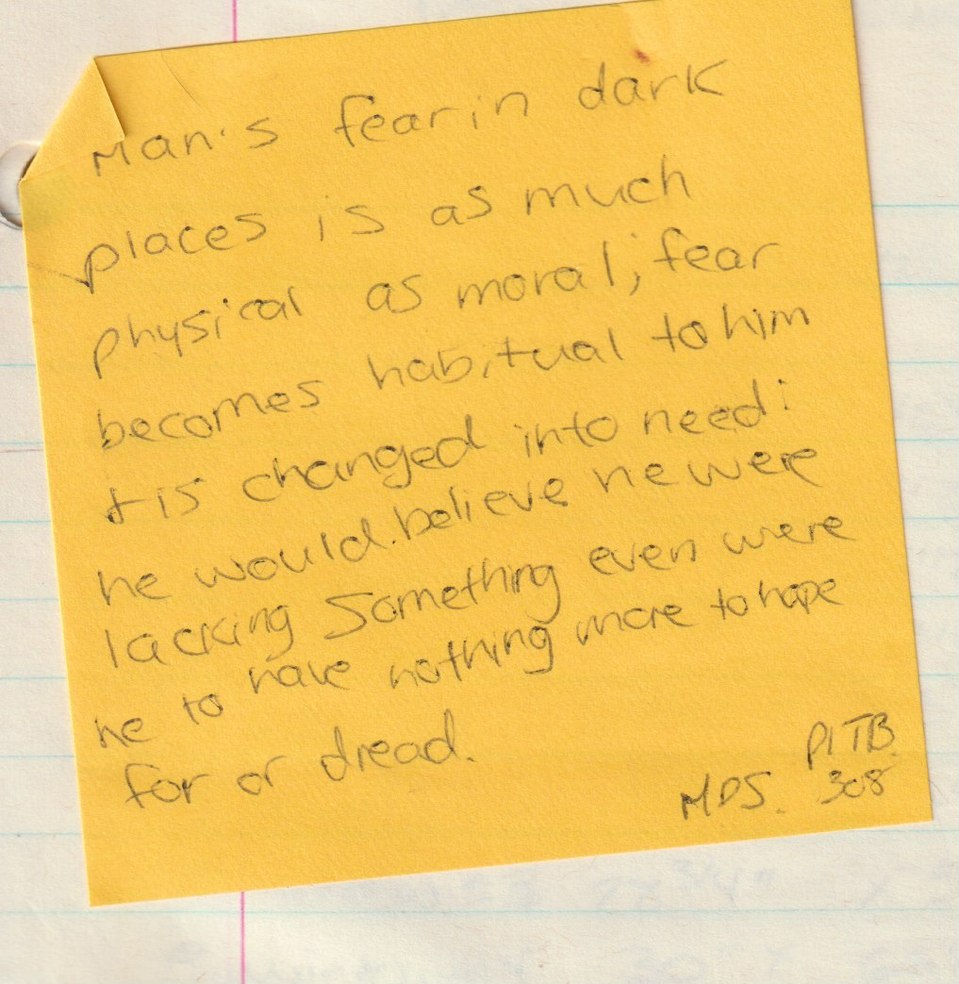 Man's fear in dark
places is as much
physical as moral; fear
becomes habitual to him
+ is changed into need:
he would believe he were
lacking something even were
he to have nothing more to hope
for or dread.
PITB
MDS. 308